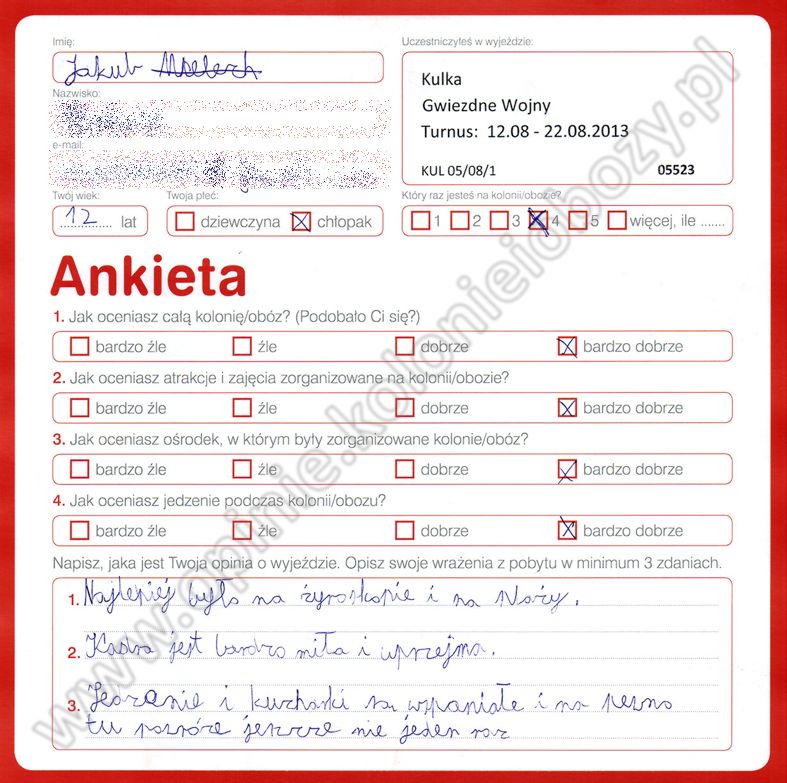 Imię:
Jakub
Nazwisko:
e-mail:
Twój wiek:
12 lat
Twoja płeć:
dziewczyna chłopak
Uczestniczyłeś w wyjeździe:
Kulka
Gwiezdne Wojny
Turnus: 12.08 - 22.08.2013
KUL 05/08/1 05523
Który raz jesteś na kolonii/obozie?
1 2 3 4 5 więcej, ile .......
Ankieta
1. Jak oceniasz całą kolonię/obóz? (Podobało Ci się?)
bardzo źle źle dobrze bardzo dobrze
2. Jak oceniasz atrakcje i zajęcia zorganizowane na kolonii/obozie?
bardzo źle źle dobrze bardzo dobrze
3. Jak oceniasz ośrodek, w którym były zorganizowane kolonie/obóz?
bardzo źle źle dobrze bardzo dobrze
4. Jak oceniasz jedzenie podczas kolonii/obozu?
bardzo źle źle dobrze bardzo dobrze
Napisz, jaka jest Twoja opinia o wyjeździe. Opisz swoje wrażenia z pobytu w minimum 3 zdaniach.
1. Najlepiej było na żyroskopie i na
2. Kadra jest bardzo miła i uprzejma.
3. i kucharki są wspaniałe i na pewno
tu jeszcze nie jeden raz
www.opinie.kolonieiobozy.pl